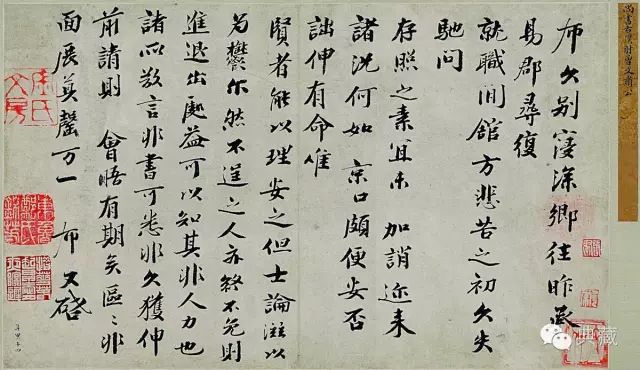 尚書右僕射曾文肅公
布久别寖深鄉往昨承
易郡尋復
就職閒館方悲苦之初久失
馳問
存照之素宜未加誚近来
諸況何如京口頗便安否
詘伸有命唯
賢者能以理安之但士論滋以
為鬱尔然不逞之人亦終不免則
進退出處益可以知其非人力也
諸所欲言非書可悉非久獲伸
前請則會晤有期矣區〻非
面展莫罄万一布又啓
典藏